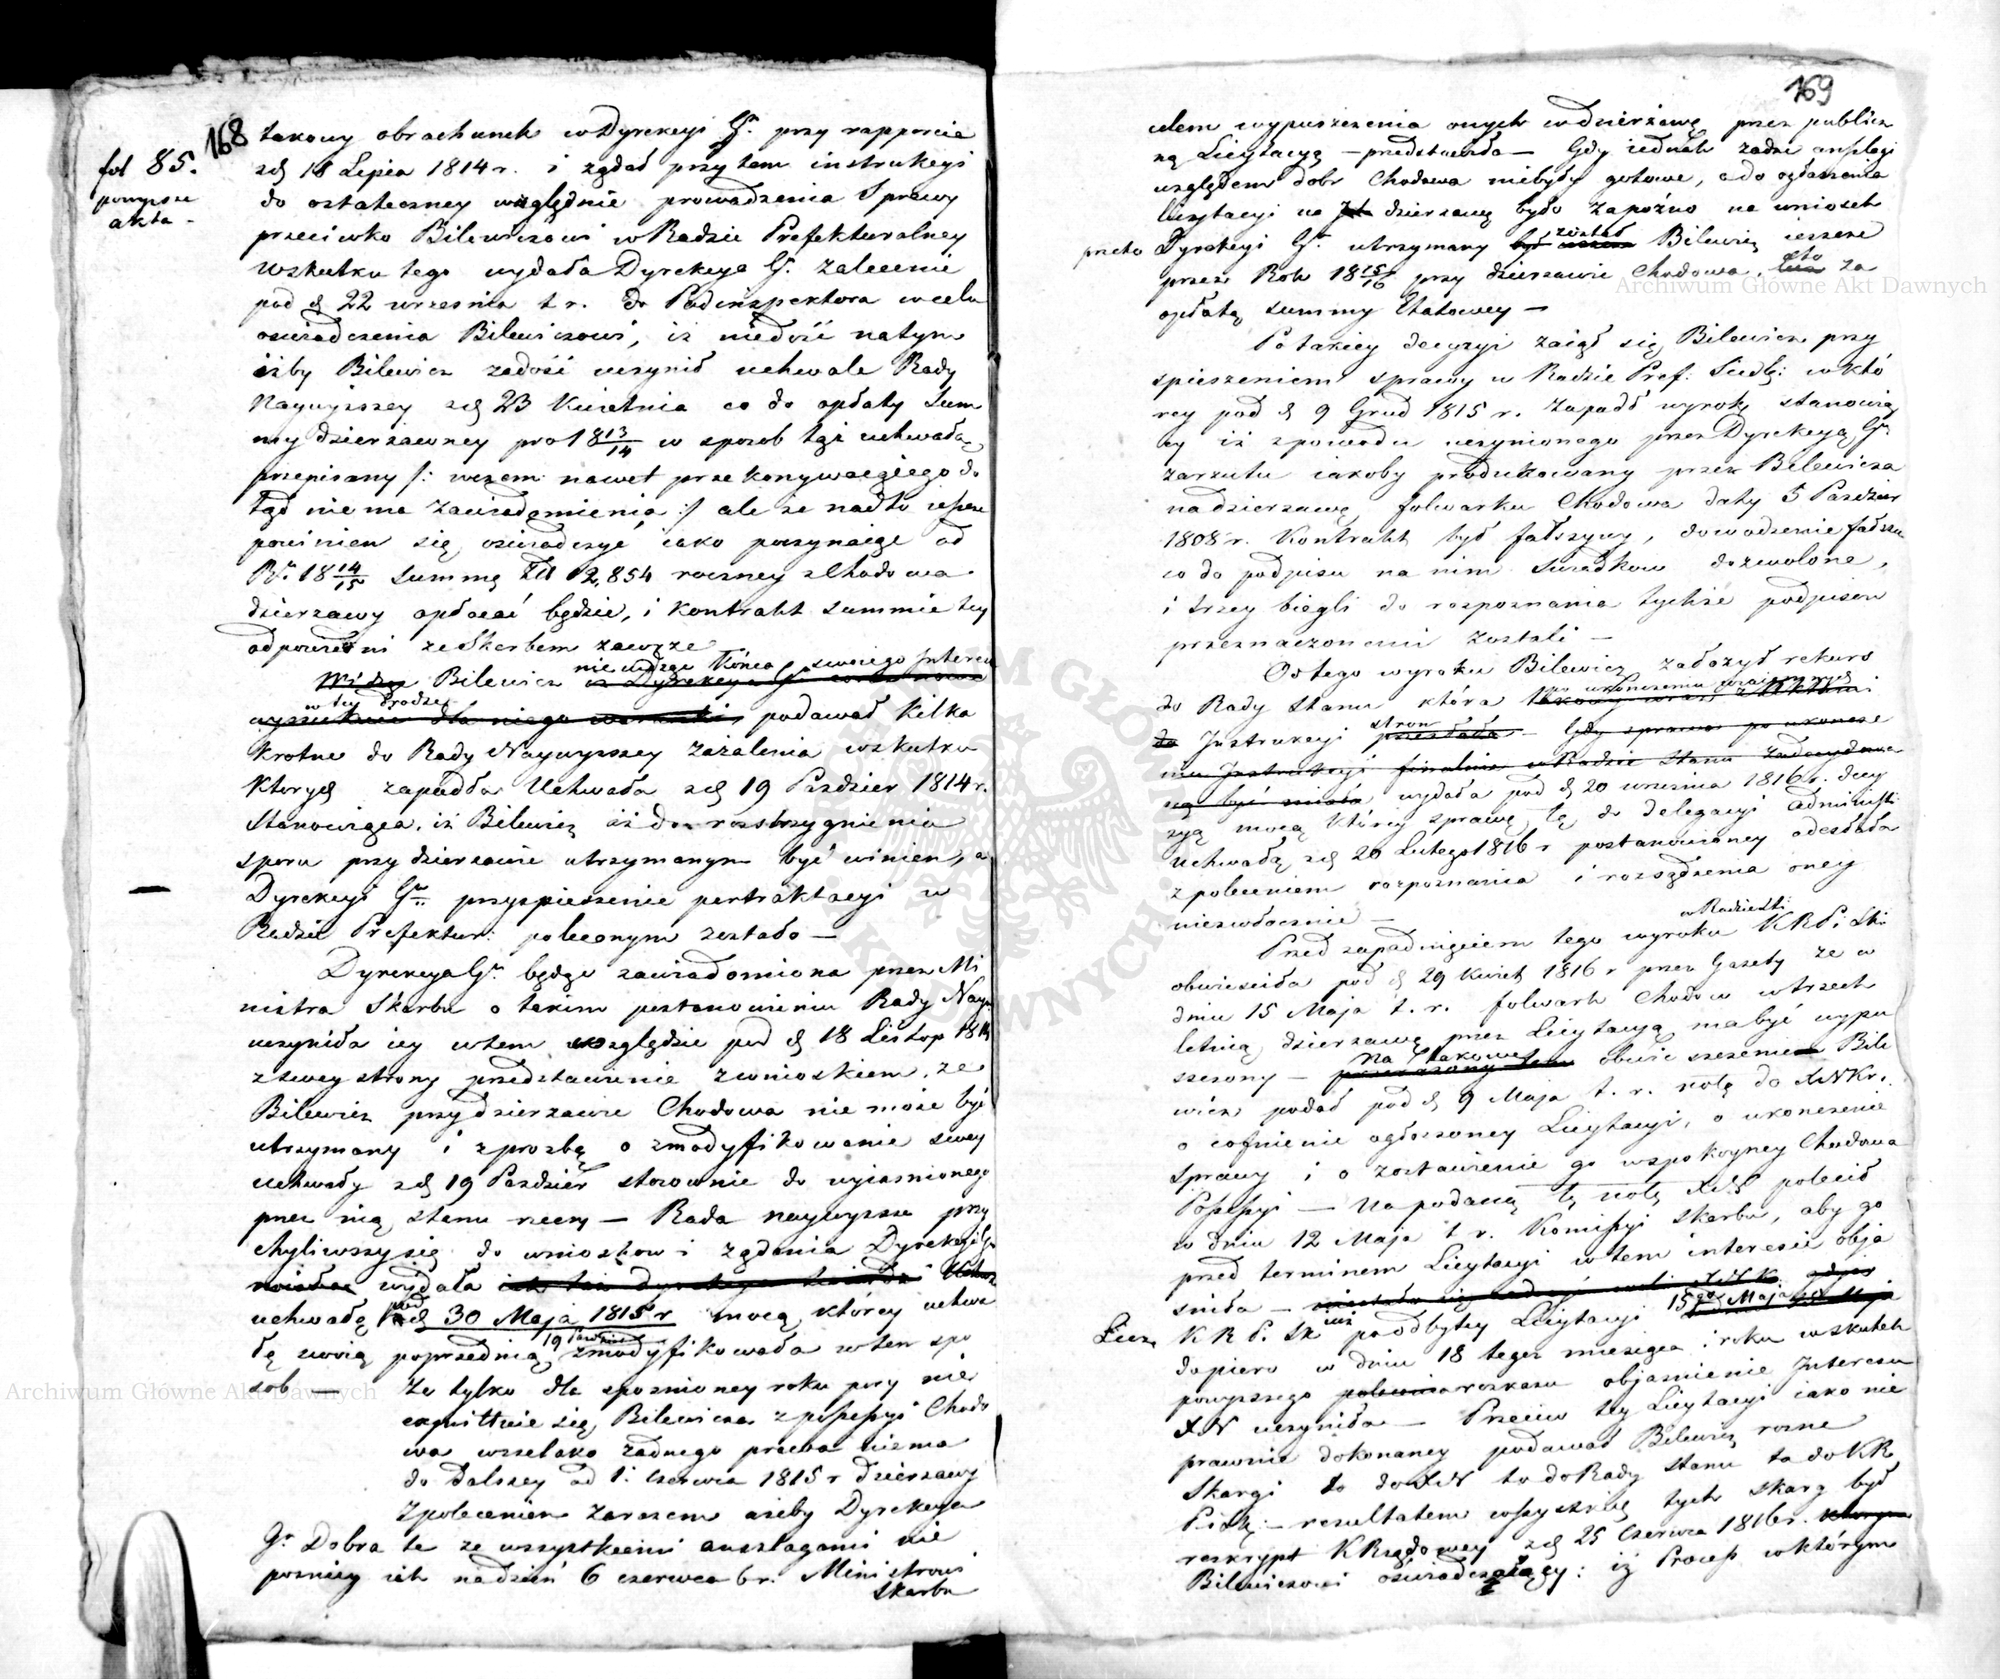 168
fol 85.
powyższe
akta -
takowy obrachunek w Dyrekcyi Gr. przy rapporcie
z d 18 Lipca 1814 r. i żądał przytem instrukcyi
do ostateczney względnie prowadzenia Sprawy
przeciwko Bilewiczowi w Radzie Prefekturalney
Wskutku tego wydała Dyrekcya Gr. zalecenie
pod d 22 września t r. do Podinspektora w celu
oświadczenia Bilewiczowi, iż niedość natym
iżby Bilewicz zadość uczynił uchwale Rady
Naywyższey z d 23 Kwietnia co do opłaty Sum
my dzierżawney pro 18 13/14 w sposob tąż uchwałą
przepisany /: wczem nawet przekonywaiącego do
tąd niema zawiadomienia :/ ale że nadto ieszcze
powinien się oświadczyć iako poczynaiąc od
Rr. 18 14/15 Summę Zł 12,854 roczney z Chodowa
dzierzawy opłacać będzie, i kontrakt summie tey
odpowiedni ze Skarbem zawrze
Bilewicz nie widząc końca swoiego Interesu
w tey drodze podawał kilka
krotne do Rady Naywyższey zażalenia wskutku
których zapadła Uchwała z d 19 Pazdzier 1814 r.
Stanowiąca, iż Bilewicz aż do rozstrzygnienia
sporu przy dzierzawie utrzymanym być winien, a
Dyrekcyi Gr. przyspieszenie pertraktacyi w
Radzie Prefektur: poleconym zostało —
Dyrekcya Gr. będąc zawiadomiona przez Mi
nistra Skarbu o takim postanowieniu Rady Nayw
uczyniła iey wtem względzie pod d 18 Listop 1814
zswey strony przedstawienie zwnioskiem, że
Bilewicz przy dzierzawie Chodowa nie może być
utrzymany i zprozbą o zmodyfikowanie swey
uchwały z d 19 Pazdzier stosownie do wyiasnionego
przez nią stanu rzeczy — Rada naywyższa przy
chyliwszy się do wniosków i żądania Dyrekcyi Gr
wydała
uchwałę pod d 30 Maja 1815 r mocą którey uchwa
łę swoią poprzednią 19 Pazdzier zmodyfikowała w ten spo
sob — że tylko dla spoznioney roku pory nie
exmittuie się Bilewicza z possessyi Chodo
wa wszelako żadnego prawa niema
do dalszey od 1. Czerwca 1815 r dzierzawy
zpoleceniem zarazem ażeby Dyrekcya
Gr Dobra te ze wszystkiemi anszlagami nie
pozniey iak nadzień 6 czerwca br. Ministrowi
Skarbu
169
celem wypuszczenia onych w dzierżawę przez publicz
ną Licytacyą — przedstawiła — Gdy iednak żadne anszlagi
względem dobr Chodowa niebyły gotowe, a do ogłaszania
licytacyi na dzierzawę było zapóźno na wniosek
przeto Dyrekcyi Gr. utrzymany został Bilewicz ieszcze
przez Rok 18 15/16 przy dzierzawie Chodowa, za
opłatą summy Etatowey —
Po takiey decyzyi zaiął się Bilewicz przy
spieszeniem sprawy w Radzie Pref: Siedl: w któ
rey pod d 9 Grud 1815 r. zapadł wyrok stanowią
cy iż zpowodu uczynionego przez Dyrekcyą Gr.
zarzutu iakoby produkowany przez Bilewicza
nadzierzawę folwarku Chodowa daty 5 Pazdzier
1808 r. Kontrakt był fałszywy, dowodzenie fałszu
co do podpisu na nim Swiadkow dozwolone,
i trzey biegli do rozpoznania tychże podpisow
przeznaczonemi zostali —
Od tego wyroku Bilewicz założył rekurs
do Rady Stanu która po ukończeniu
Instrukcyi stron
wydała pod d 20 września 1816 r. decy
zyą mocą którey sprawę tę do delegacyi administr:
uchwałą z d 20 Lutego 1816 r postanowioney odesłała
z poleceniem rozpoznania i rozsądzenia oney
niezwłocznie —
Przed zapadnięciem tego wyroku w Radzie St: KRP. Sk:
obwieściła pod d 29 Kwiet 1816 r przez Gazety że w
dniu 15 Maja t. r. folwark Chodow wtrzech
letnią dzierzawę przez Licytacyą ma być wypu
szczony — Na takowe obwieszczenie Bile
wicz podał pod d 9 Maja t. r. notę do XNKr.
o cofnienie ogłoszoney Licytacyi, o ukonczenie
Sprawy i o zostawienie go wspokoyney Chodowa
Possessyi — Na podaną tę notę XN polecił
w dniu 12 Maja t r. Komissyi Skarbu, aby go
przed terminem Licytacyi w tem interesie obja
sniła —
Lecz KRP. Sk już poodbytey Licytacyi 15go Maja
dopiero w dniu 18 tegoż miesiąca i roku wskutek
powyższego rozkazu objasnienie Interesu
XN uczyniła — Przeciw tey Licytacyi iako nie
prawnie dokonaney podawał Bilewicz rozne
Skargi to do XN to do Rady Stanu to do KR
P i Sk: — resultatem wszystkich tych skarg był
reskrypt K Rządowey z d 25 Czerwca 1816 r.
Bilewiczowi oświadczaiący: iż Process w którym
Archiwum Główne Akt Dawnych
Archiwum Główne Akt Dawnych